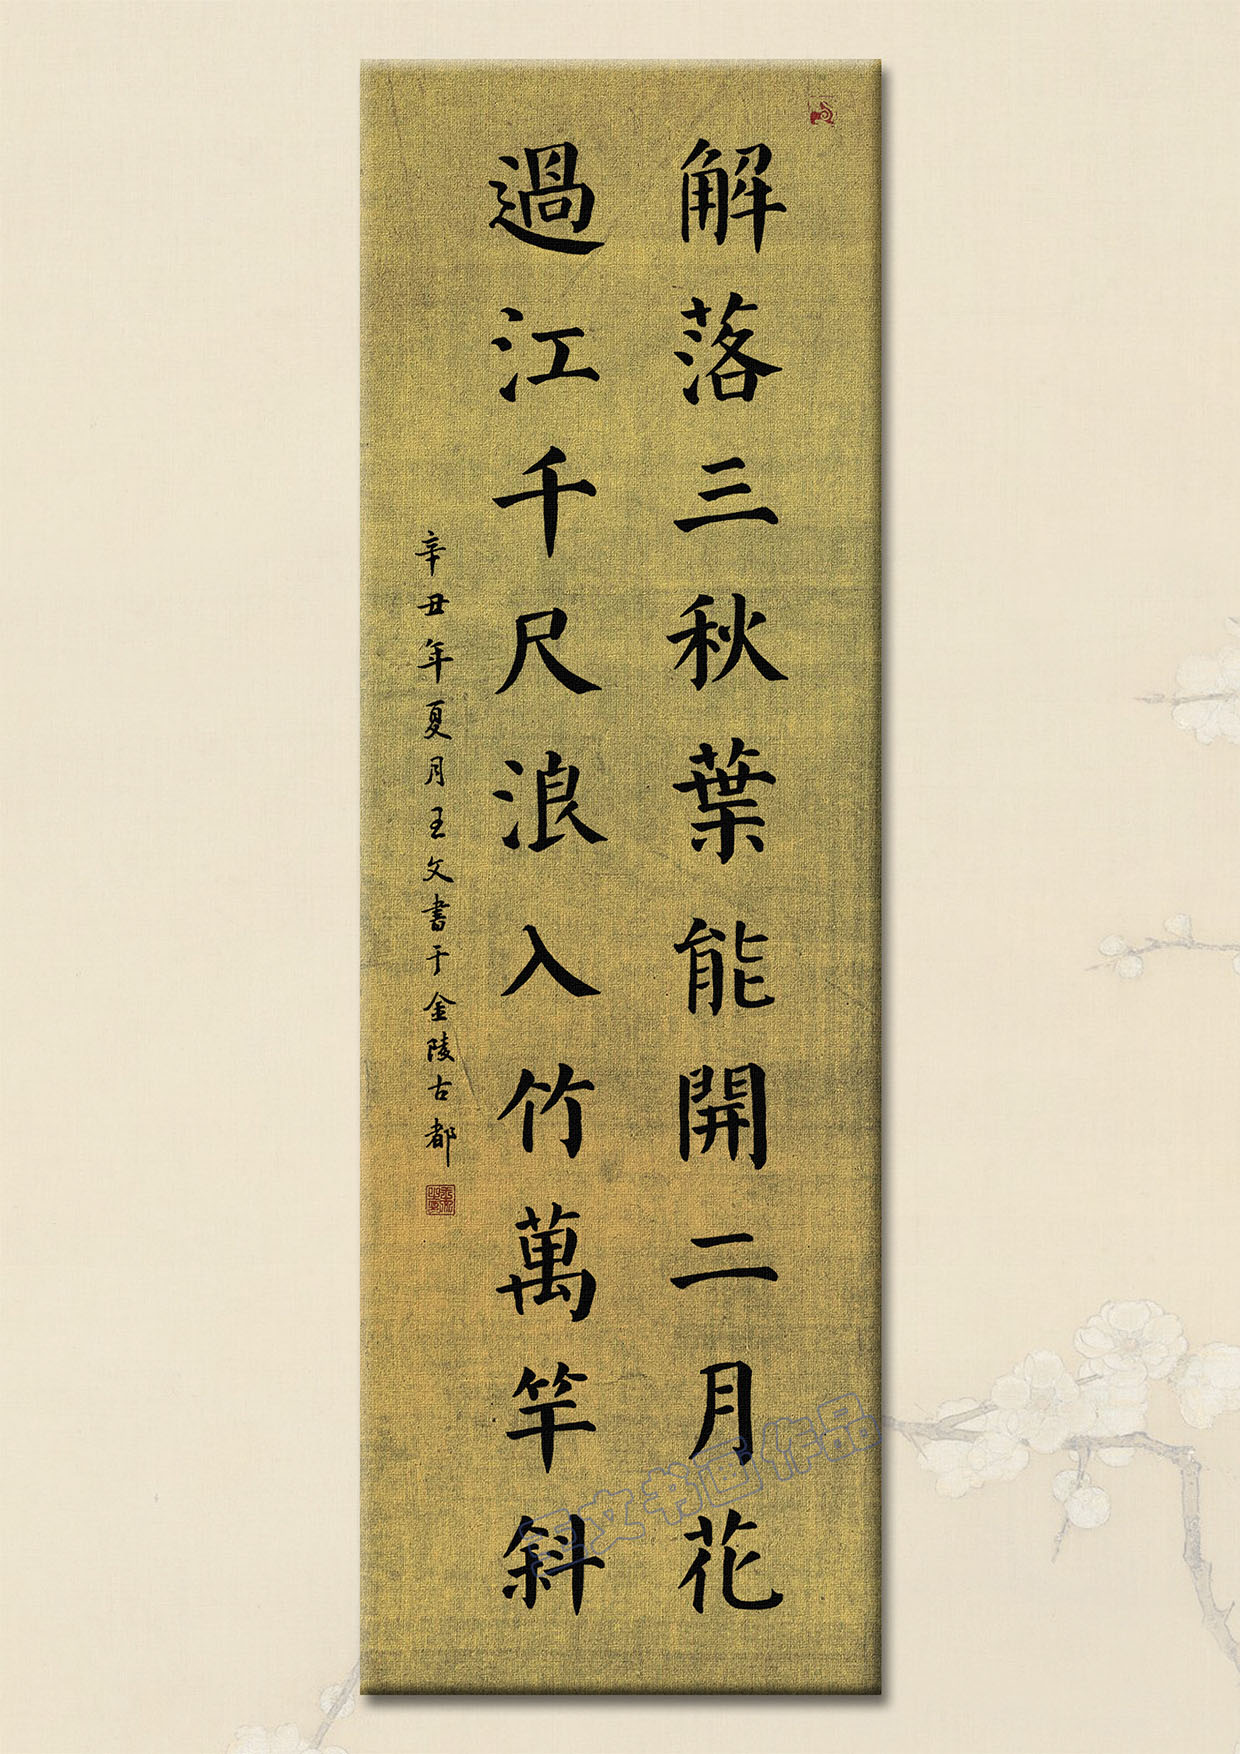 解落三秋葉能開二月花
過江千尺浪入竹萬竿斜
辛丑年夏月王文書于金陵古都
王文书画作品